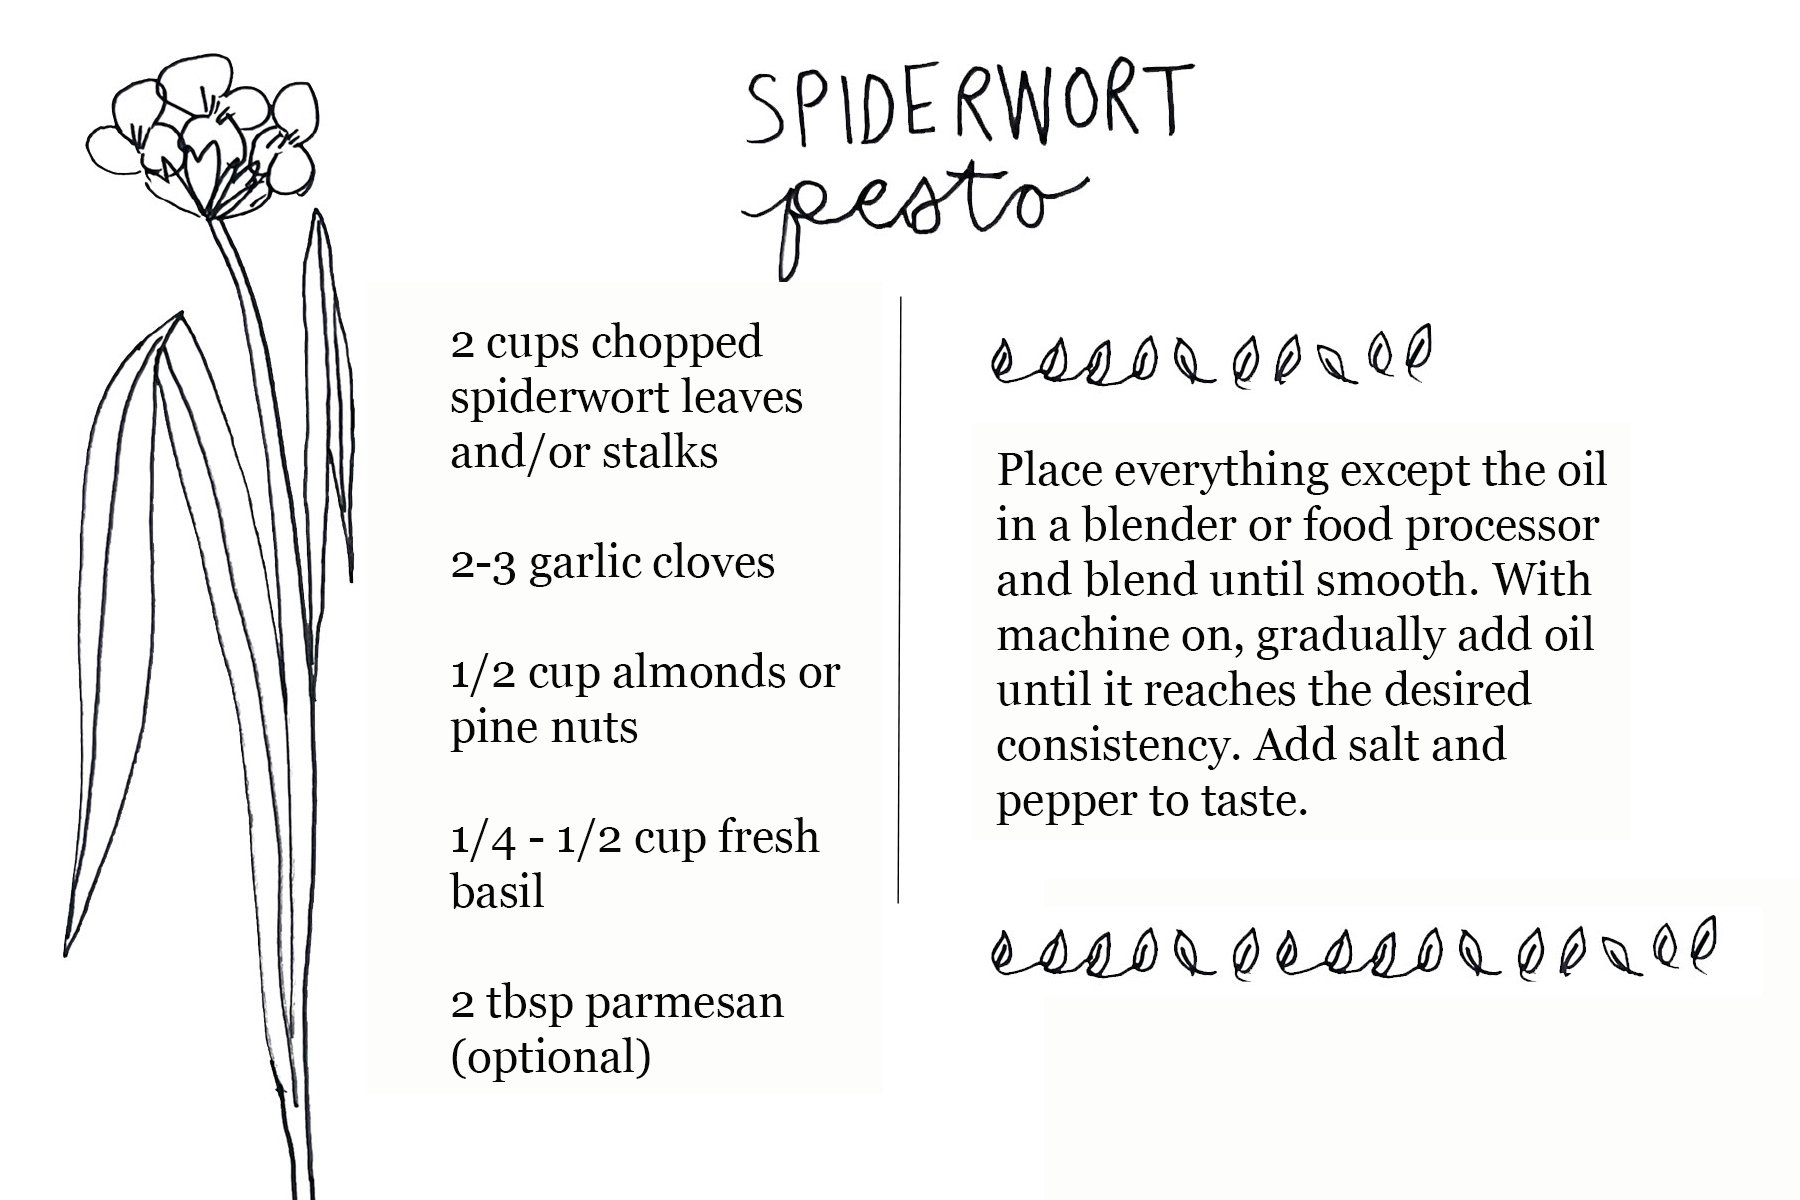 SPIDERWORT
pesto
2 cups chopped
spiderwort leaves
and/or stalks
2-3 garlic cloves
1/2 cup almonds or
pine nuts
1/4 - 1/2 cup fresh
basil
2 tbsp parmesan
(optional)
Place everything except the oil
in a blender or food processor
and blend until smooth. With
machine on, gradually add oil
until it reaches the desired
consistency. Add salt and
pepper to taste.